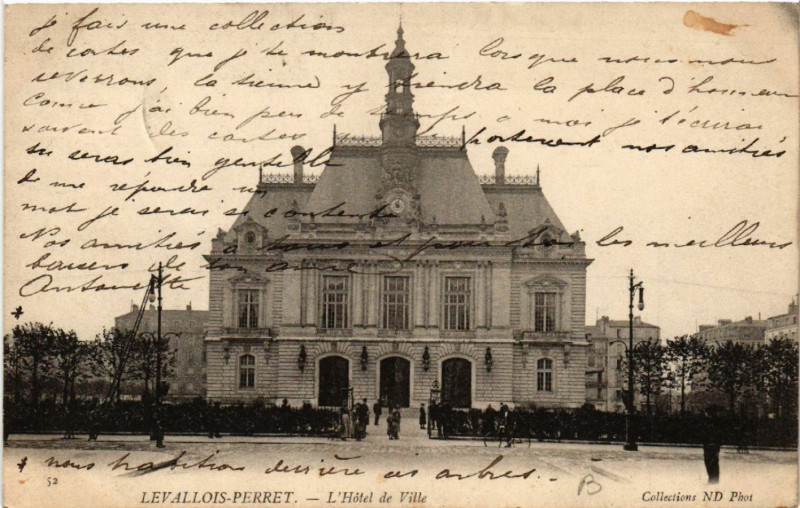 je fais une collection
de cartes que je te montrerai lorsque nous nous
reverrons, la tienne y tiendra la place d'honneur
Comme j'ai bien peu de temps à moi je t'écrirai
souvent des cartes portent nos amitiés
tu seras bien gentille
de me répondre un
mot je serais si contente
Nos amitiés à tous et pour toi les meilleurs
baisers de ton amie
Antoinette
* nous habitons derrière ces arbres.
52
B
LEVALLOIS-PERRET. — L'Hôtel de Ville
Collections ND Phot